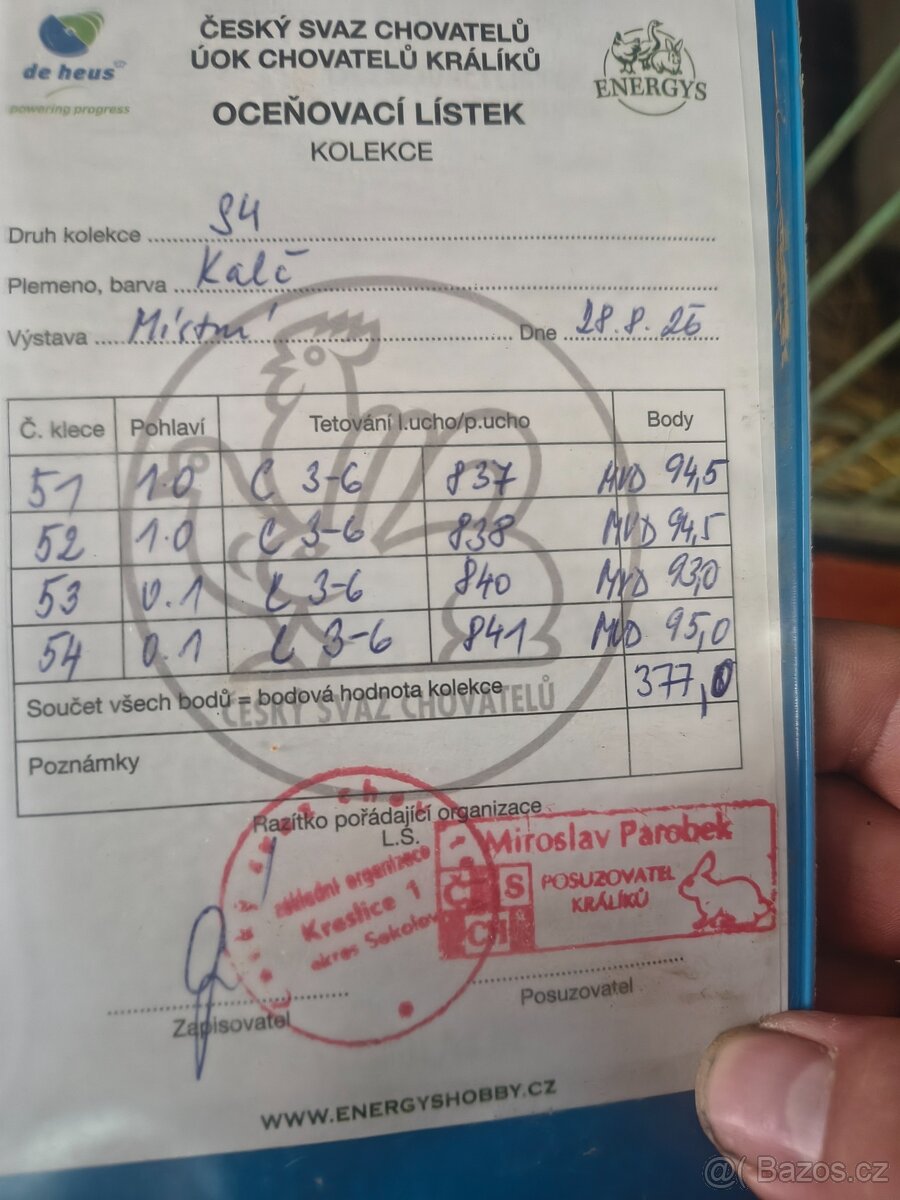 de heus
powering progress
ČESKÝ SVAZ CHOVATELŮ
ÚOK CHOVATELŮ KRÁLÍKŮ
ENERGYS
OCEŇOVACÍ LÍSTEK
KOLEKCE
Druh kolekce S4
Plemeno, barva Kalč
Výstava Místní Dne 28.8.25
Č. klece Pohlaví Tetování l.ucho/p.ucho Body
51 1.0 C 3-6 837 MVD 94,5
52 1.0 C 3-6 838 MVD 94,5
53 0.1 C 3-6 840 MVD 93,0
54 0.1 C 3-6 841 MVD 95,0
Součet všech bodů = bodová hodnota kolekce 377,0
ČESKÝ SVAZ CHOVATELŮ
Poznámky
Razítko pořádající organizace
L.S.
základní organizace
Kraslice 1
okres Sokolov
Miroslav Parobek
ČS CH
POSUZOVATEL
KRÁLÍKŮ
Zapisovatel Posuzovatel
WWW.ENERGYSHOBBY.CZ
Bazos.cz